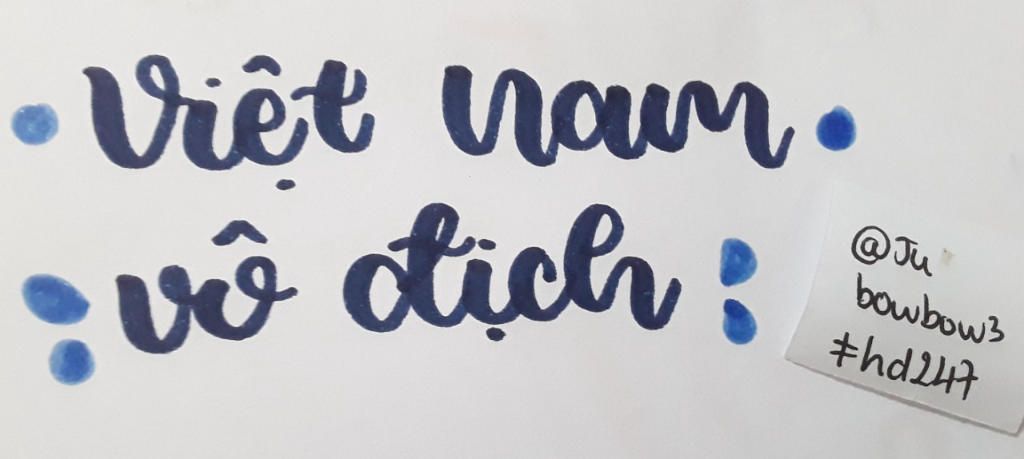 Việt nam
vô địch
@Ju
bowbow3
#hd247